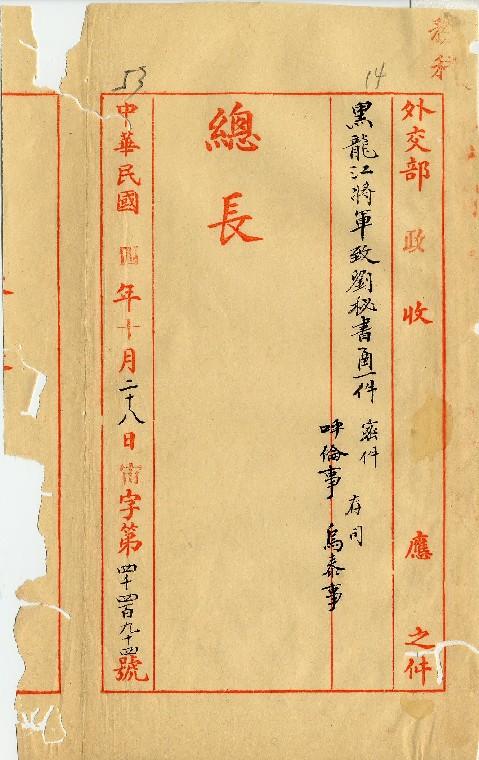 14
53
外交部 政 收 應 之件
黑龍江將軍致劉秘書函一件 密件 存司
呼倫事 烏泰事
總長
中華民國 四年十月二十八日 字第四千四百九十四號